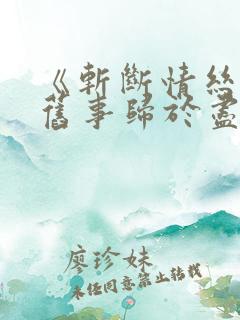 《斬斷情絲
舊事歸於盡
廖珍妹
未经同意禁止转载